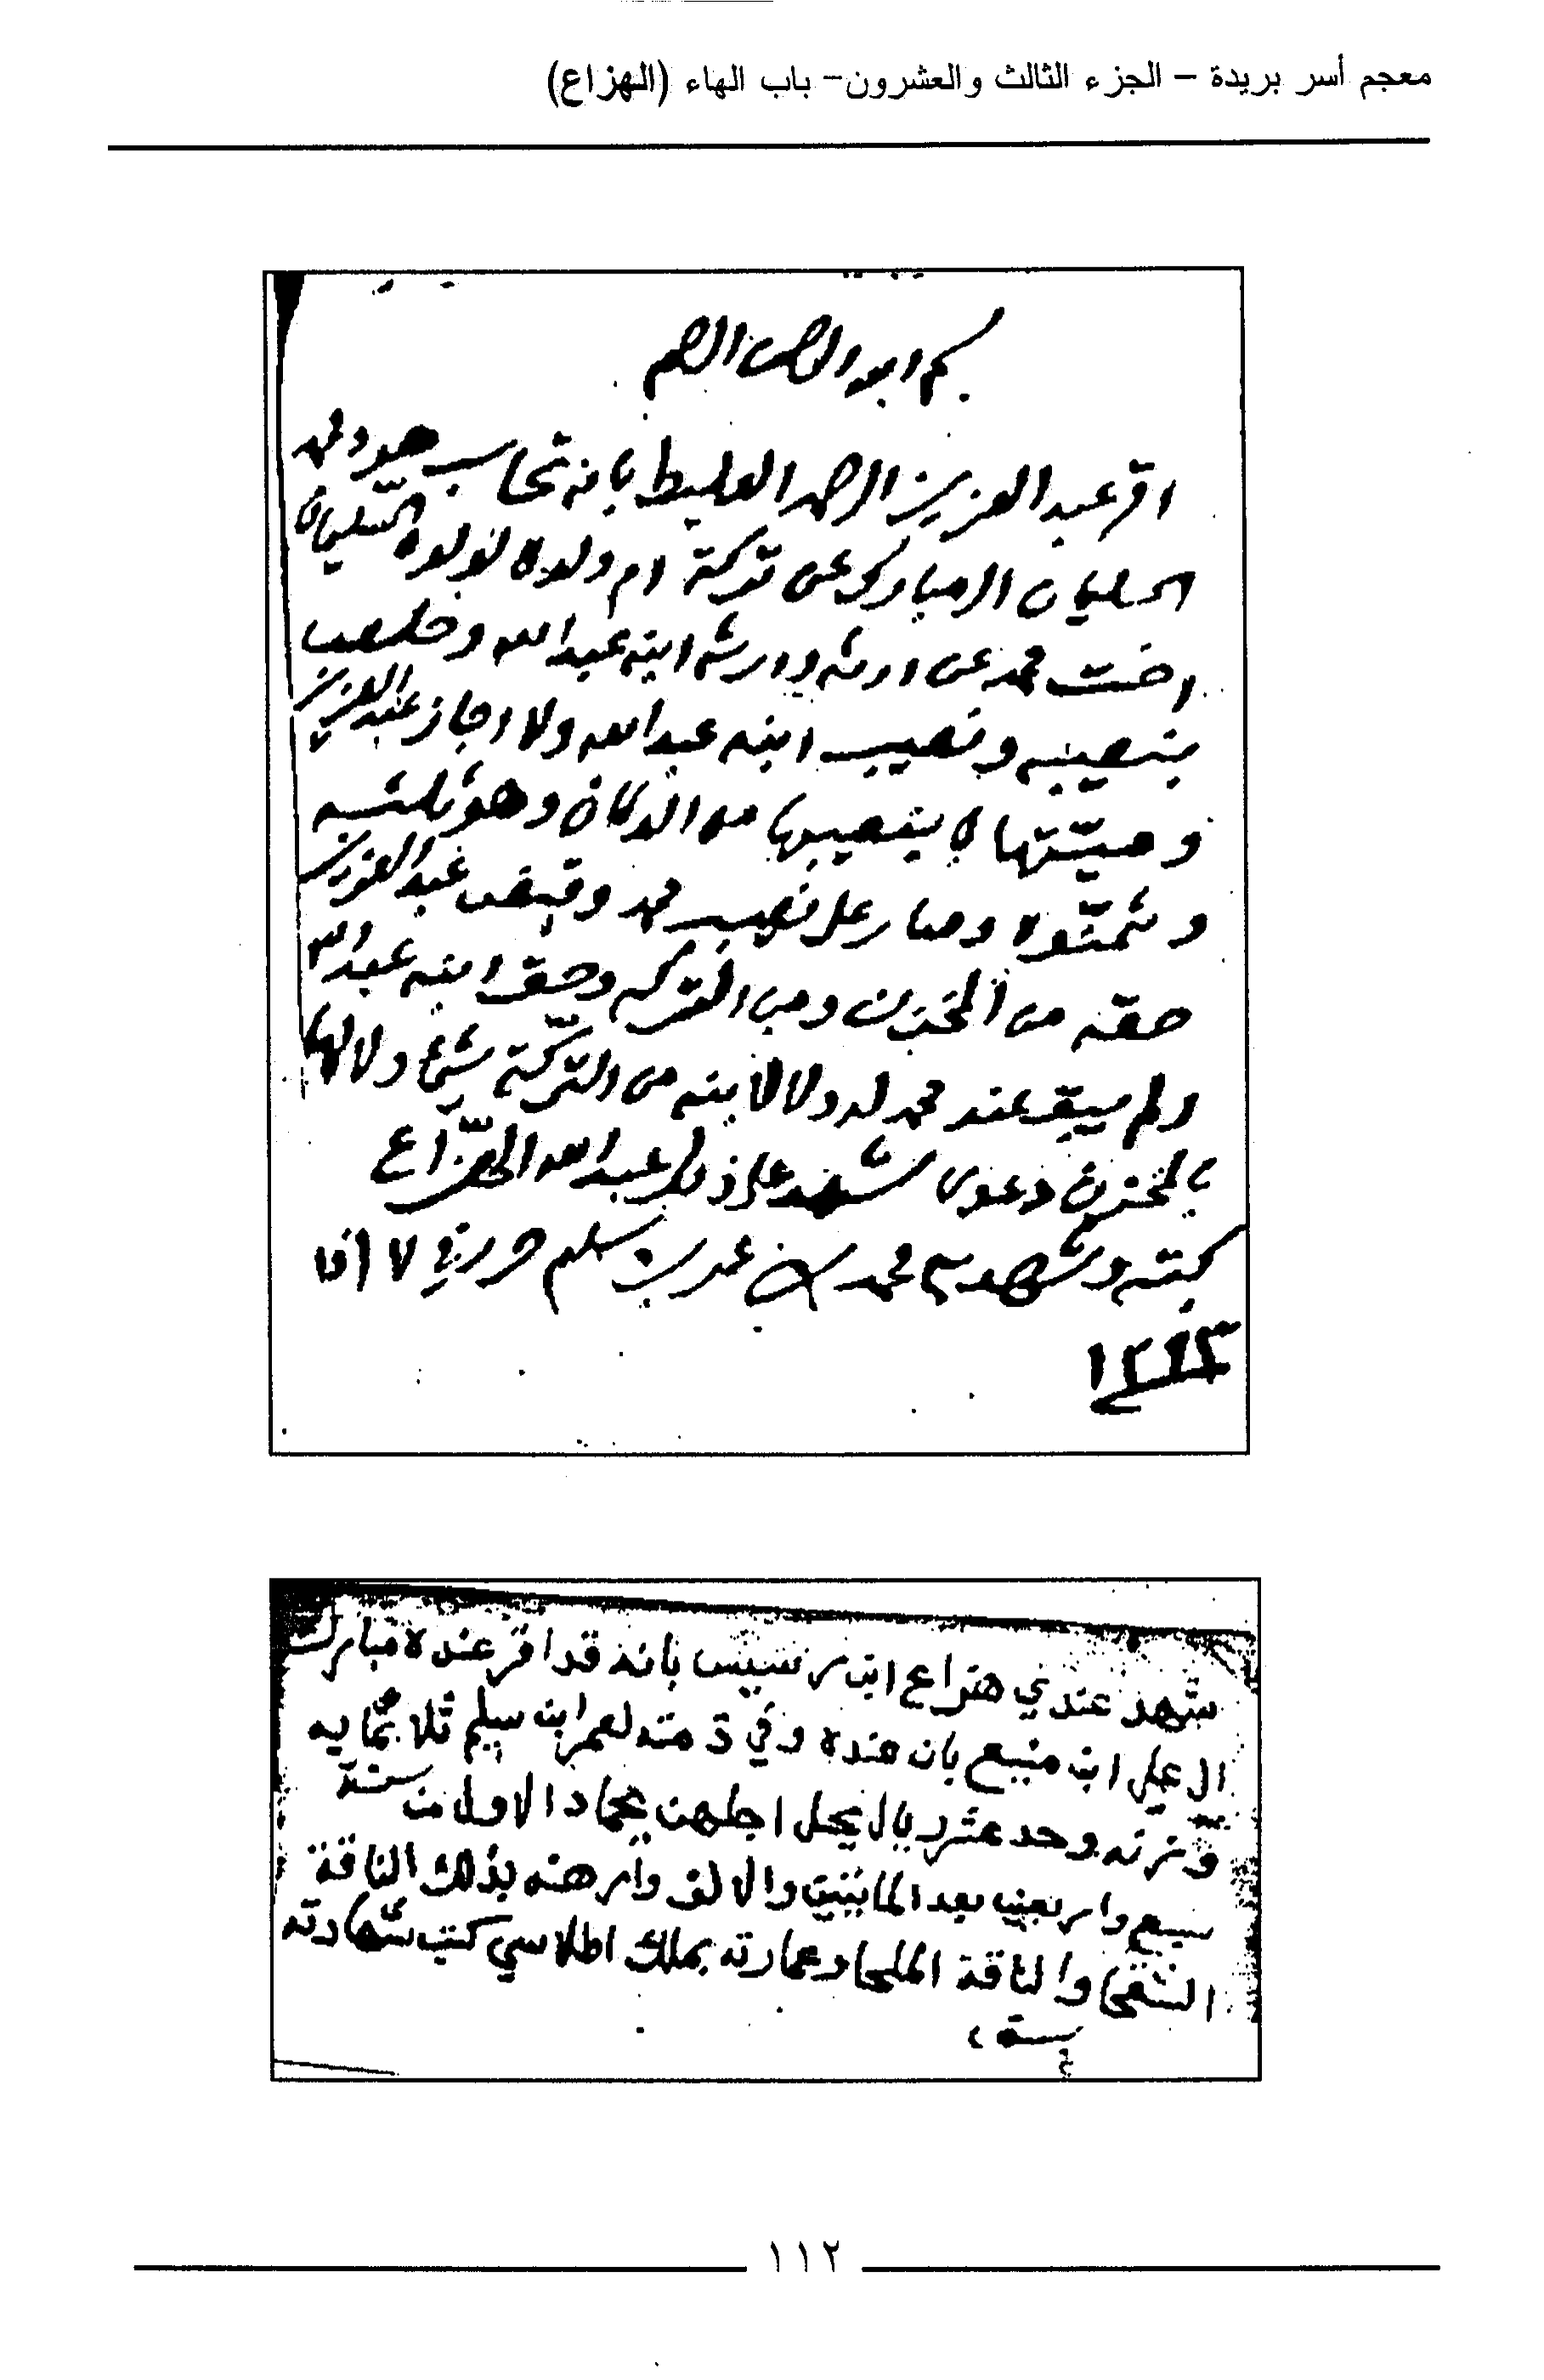 معجم أسر بريدة – الجزء الثالث والعشرون– باب الهاء (الهزاع)
بسم الله الرحمن الرحيم
اقر عبد العزيز الرحمن العليط بانه تحاسب هو ومحمد
السليمان المبارك عن تركة ام ولده لولوه السليمان
اخت محمد عن ارثه وارث ابنه عبد الله
بنصيبه ونصيب ابنه عبد الله ولا اجاز عبد العزيز
وصيتها بنصيبها من الدكان وهو ثلثيه
وثمنوه وصار على نصيب محمد وقبض عبد العزيز
حقه من المخزن ومن التركه وحق ابنه عبد الله
ولم يبق عند محمد له ولا لابنه من التركة شي ولا لهم
بالمخزن دعوى شهد على ذلك عبد الله الهزاع
كتبه وشهد به محمد بن عمر بن سليم حرر في ١٧
شهد عندي هزاع ابن بانه قد اقر عنده مبارك
العلي ابن منيع بان عنده وفي ذمته لعمر ابن سليم ثلاثمايه
وزنه وحد عشر ريال يحل اجلهن بجماد الاول من سنة
سبع واربعين بعد المايتين والالف وارهنه بذلك الناقة
الشقحا والناقة الملحا وعمارته بملك اطلاسي كتب شهادته
١١٢